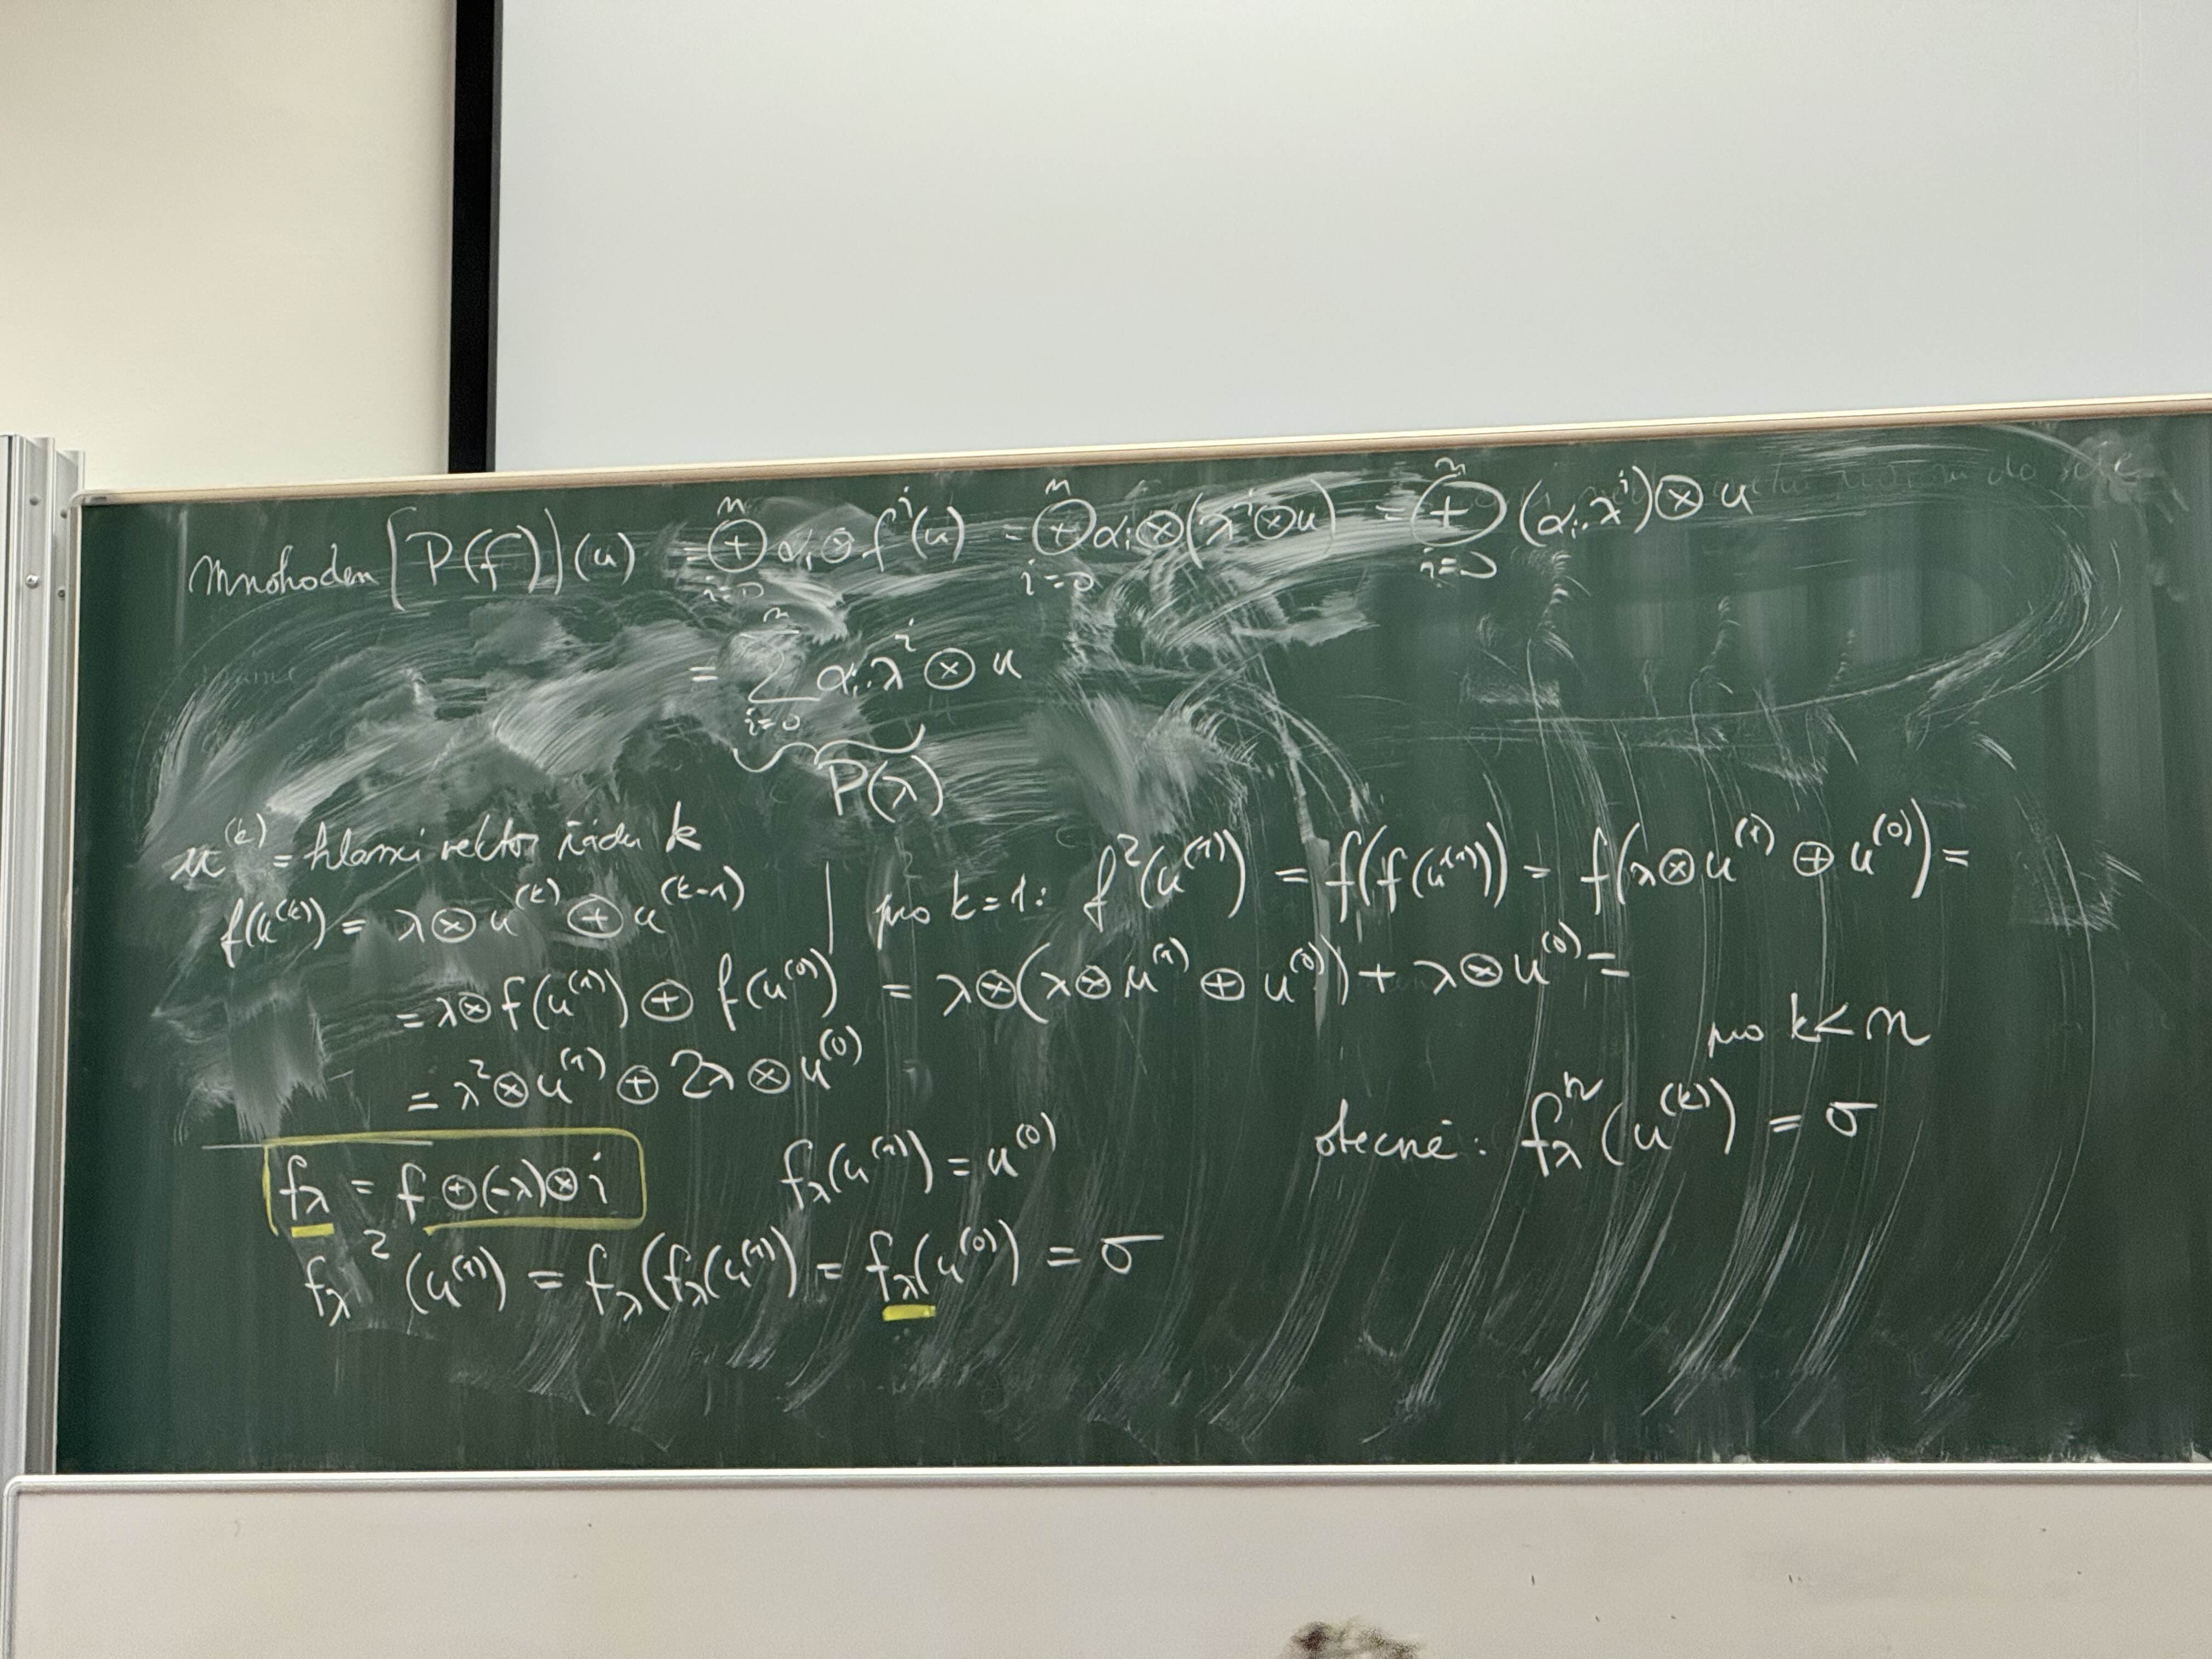 Mnohočlen [P(f)](u) = ⊕_{i=0}^{n} α_i ⊗ f^i(u) = ⊕_{i=0}^{n} α_i ⊗ (λ^i ⊗ u) = ⊕_{i=0}^{n} (α_i·λ^i) ⊗ u
= ∑_{i=0}^{n} α_i·λ^i ⊗ u
P(λ)
u^(k) = hlavní vektor řádu k
f(u^(k)) = λ ⊗ u^(k) ⊕ u^(k-1) | pro k=1: f²(u^(1)) = f(f(u^(1))) = f(λ ⊗ u^(1) ⊕ u^(0)) =
= λ ⊗ f(u^(1)) ⊕ f(u^(0)) = λ ⊗ (λ ⊗ u^(1) ⊕ u^(0)) + λ ⊗ u^(0) =
= λ² ⊗ u^(1) ⊕ 2λ ⊗ u^(0)
pro k < n
obecně: f_λ^n (u^(k)) = σ
f_λ = f ⊕ (-λ) ⊗ i
f_λ(u^(1)) = u^(0)
f_λ² (u^(1)) = f_λ(f_λ(u^(1)) = f_λ(u^(0)) = σ